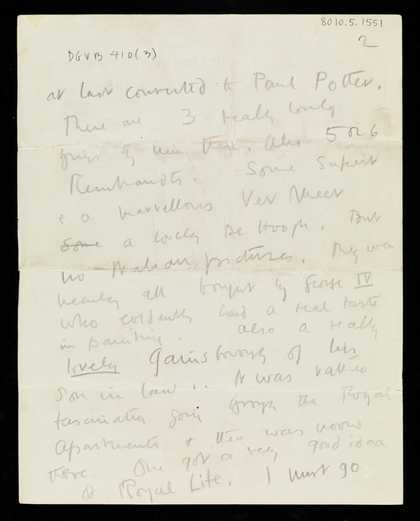 8010.5.1551
2
DGVB 410(3)
at last converted to Paul Potter.
There are 3 really lovely
things by him there. Also 5 or 6
Rembrandts. Some superb
& a marvellous Ver Meer
Some a lovely De Hoogh. But
no Italian pictures. They was
nearly all bought by George IV
who evidently had a real taste
in painting. Also a really
lovely Gainsborough of his
son in law!. It was rather
fascinating going through the Royal
Apartments & there was
there. One got a very good idea
of Royal Life. I must go